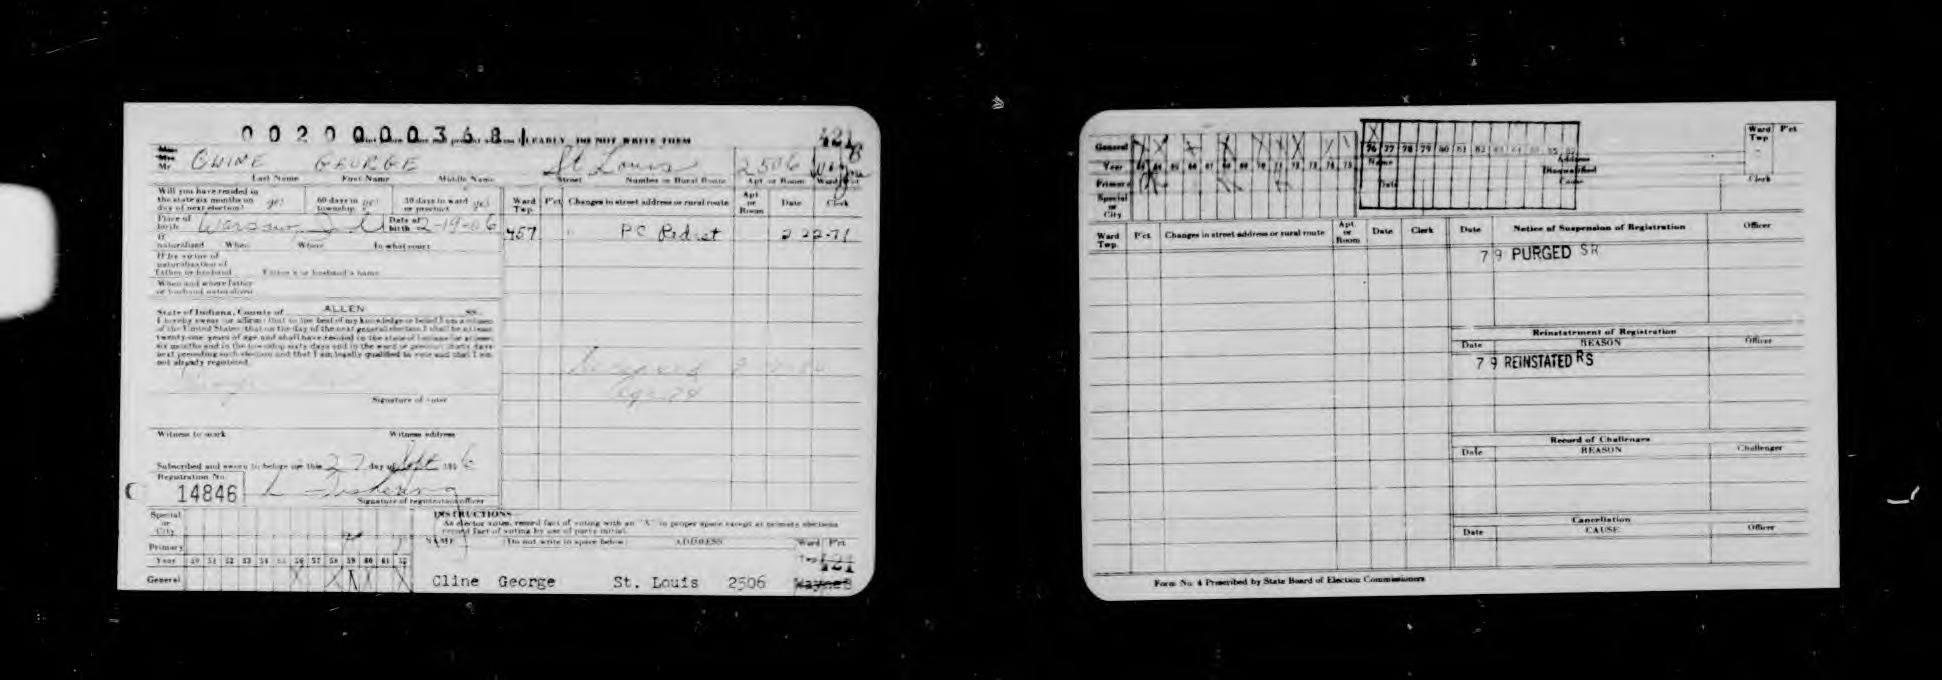 0020000368
CLEARLY DO NOT WRITE THEM
421
Mr. CLINE GEORGE St Louis 2506
Last Name First Name Middle Name Street Number or Rural Route Apt. or Room Ward Pct.
Will you have resided in the state six months on day of next election? yes 60 days in township yes 30 days in ward or precinct yes
Ward Twp. Pct. Changes in street address or rural route Apt. or Room Date Clerk
Place of birth Warsaw, Date of birth 2-19-06
457 " PC Redist 2 22-71
If naturalized When Where In what court
If by virtue of naturalization of father or husband Father's or husband's name
When and where father or husband naturalized
State of Indiana, County of ALLEN ss.
I hereby swear (or affirm) that to the best of my knowledge or belief I am a citizen
of the United States; that on the day of the next general election I shall be at least
twenty-one years of age and shall have resided in the state of Indiana for at least
six months and in the township sixty days and in the ward or precinct thirty days
next preceding such election and that I am legally qualified to vote and that I am
not already registered.
Signature of voter
Witness to mark Witness address
Subscribed and sworn to before me this 27 day of Sept 1956
Registration No.
14846
Signature of registration officer
Special or City
Primary
Year 50 51 52 53 54 55 56 57 58 59 60 61 62
General
INSTRUCTIONS
As elector votes, record fact of voting with an "X" in proper space except at primary elections
record fact of voting by use of party initial.
NAME (Do not write in space below) ADDRESS Ward Pct.
Twp. 421
Cline George St. Louis 2506 Wayne8
General
Year 63 64 65 66 67 68 69 70 71 72 73 74 75 76 77 78 79 80 81 82 83 84 85 86 87
Primary
Special or City
Name Address
Disqualified
Date Cause
Ward Twp Pct.
Clerk
Ward Twp. Pct. Changes in street address or rural route Apt. or Room Date Clerk
Date Notice of Suspension of Registration Officer
79 PURGED SR
Reinstatement of Registration
Date REASON Officer
79 REINSTATED RS
Record of Challenges
Date REASON Challenger
Cancellation
Date CAUSE Officer
Form No. 4 Prescribed by State Board of Election Commissioners